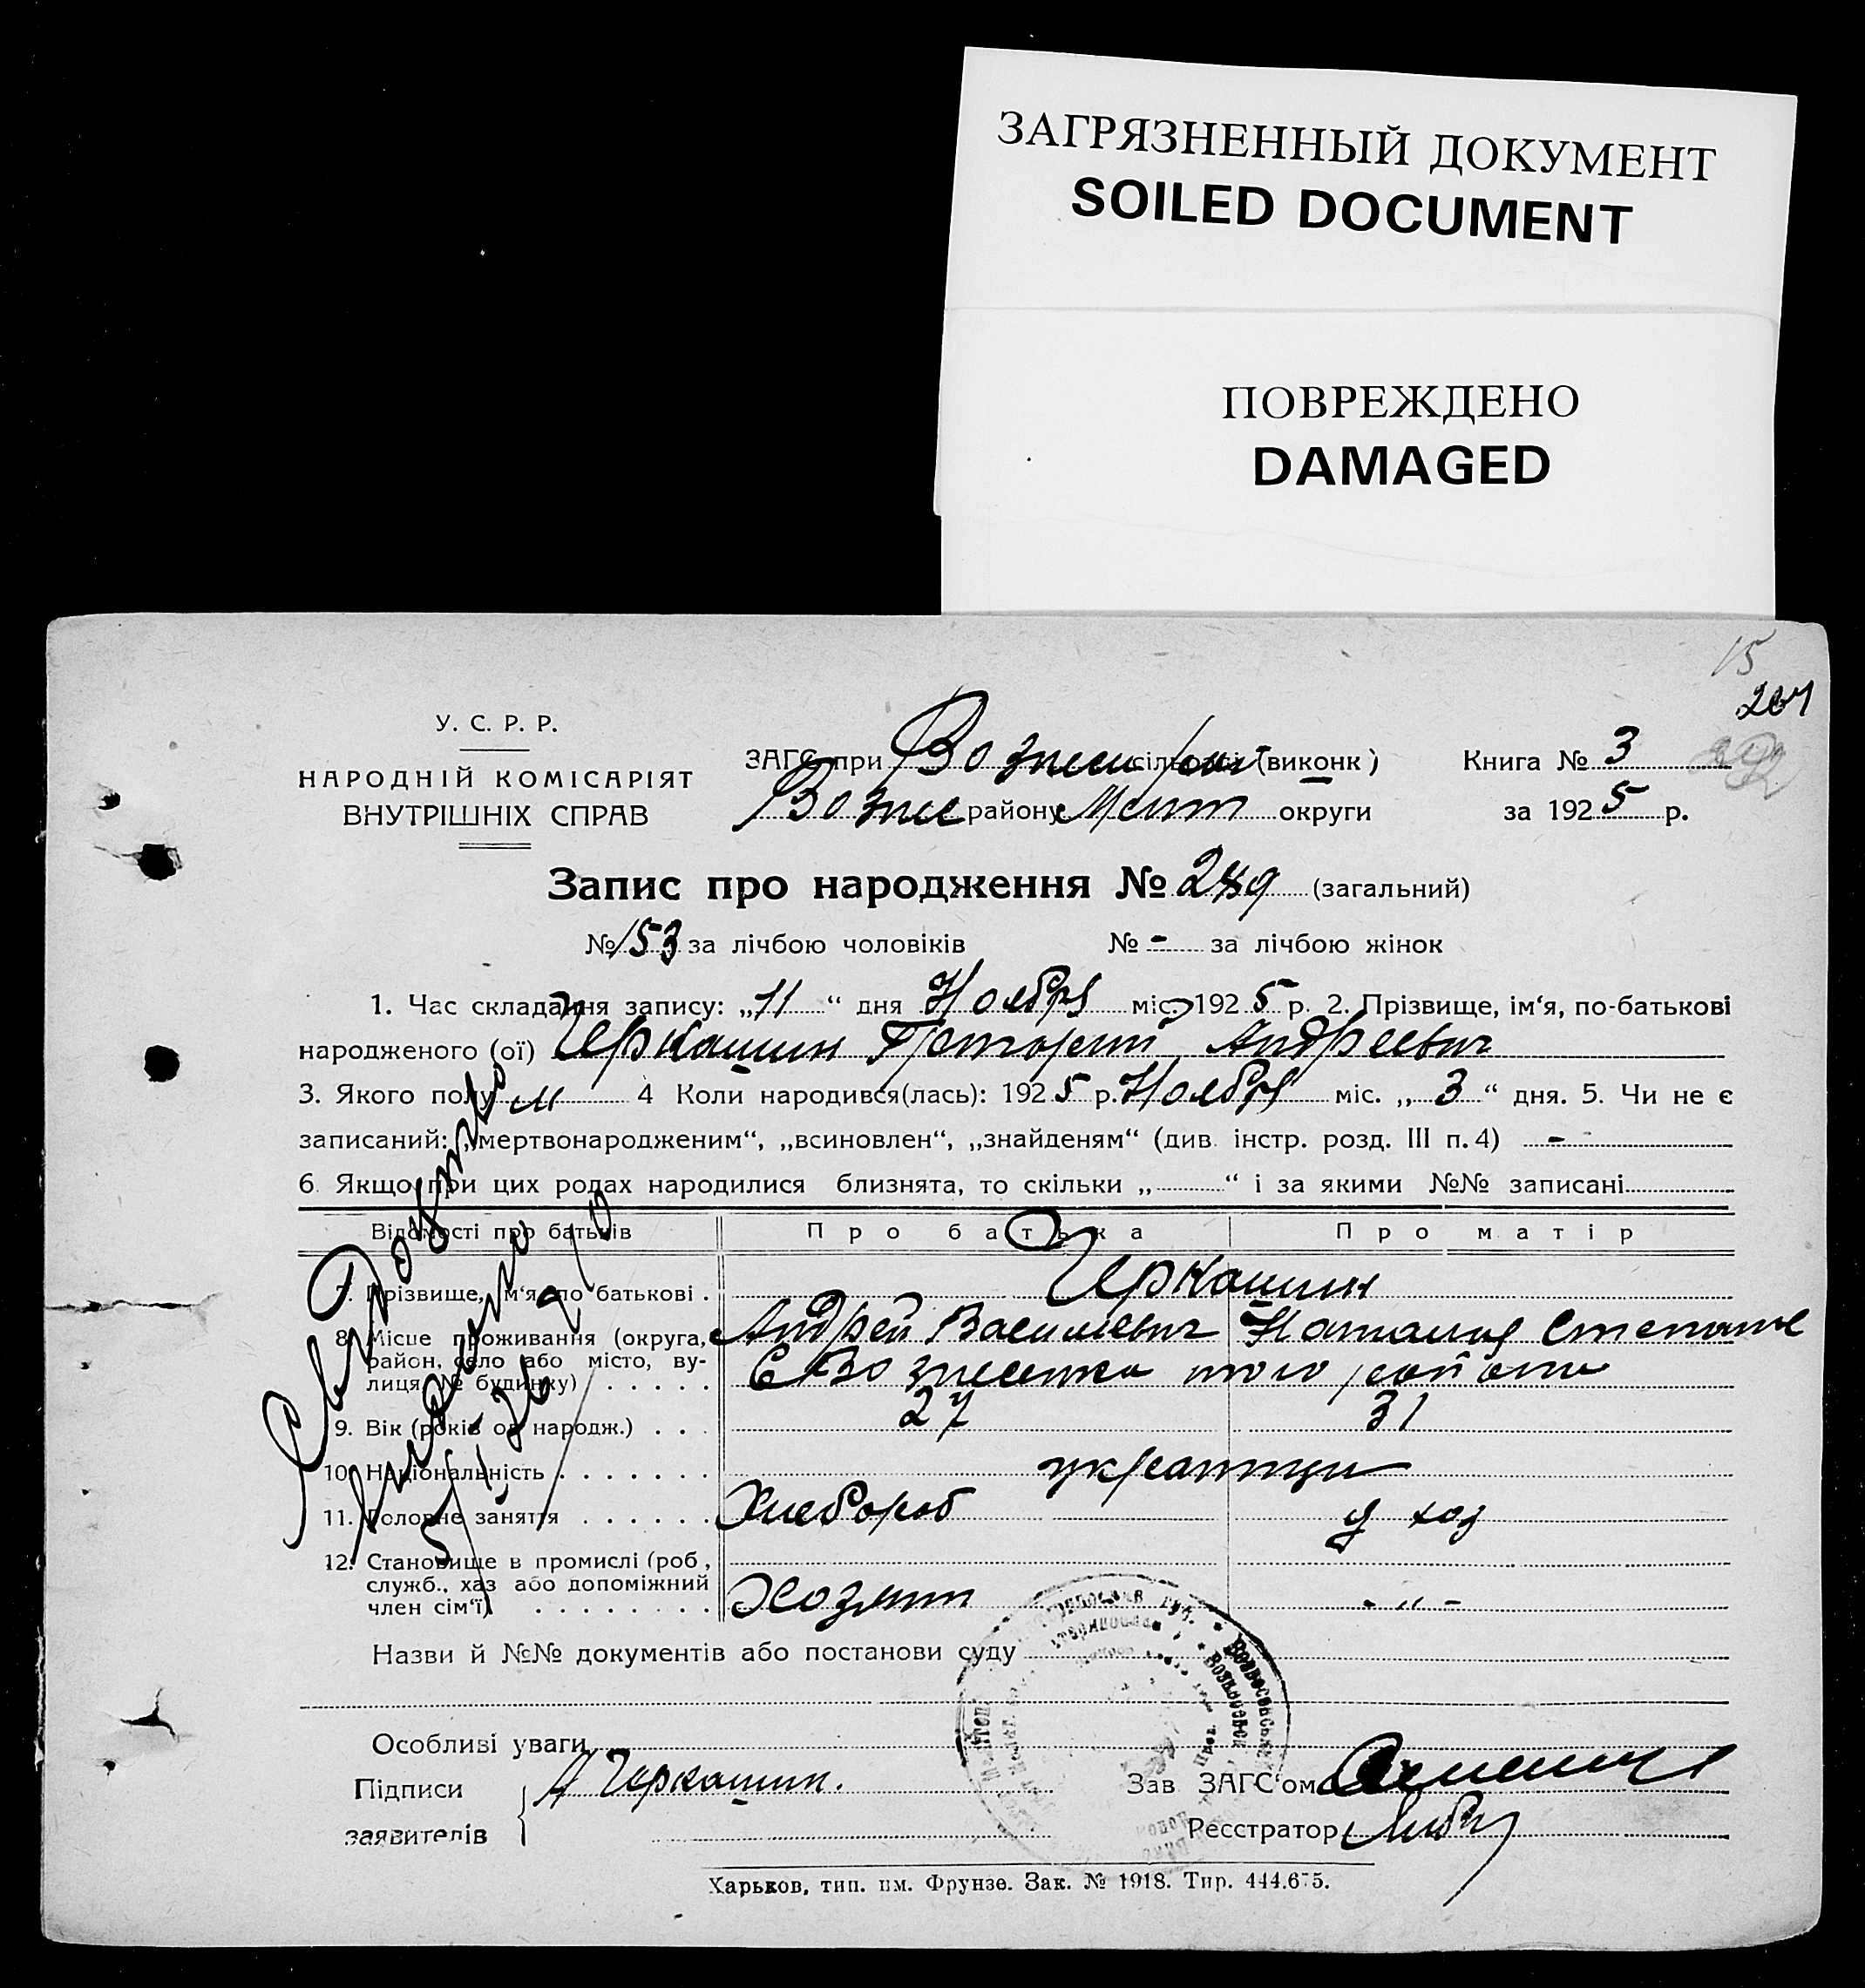 ЗАГРЯЗНЕННЫЙ ДОКУМЕНТ
SOILED DOCUMENT
ПОВРЕЖДЕНО
DAMAGED
15
У. С. Р. Р.
НАРОДНІЙ КОМІСАРІЯТ
ВНУТРІШНІХ СПРАВ
ЗАГС при (виконк) Книга № 3
району Мелит округи за 1925 р.
Запис про народження № (загальний)
№ 153 за лічбою чоловіків № - за лічбою жінок
1. Час складання запису: „11“ дня Ноября міс. 1925 р. 2. Прізвище, ім‘я, по-батькові
народженого (ої) Черкашин Григорий Андреевич
3. Якого полу м 4 Коли народився(лась): 1925 р. Ноября міс. „3“ дня. 5. Чи не є
записаний: „мертвонародженим“, „всиновлен“, „знайденям“ (див. інстр. розд. III п. 4) -
6. Якщо при цих родах народилися близнята, то скільки „ “ і за якими №№ записані
Відомості про батьків Про батька Про матір
7. Прізвище, ім‘я, по батькові . Черкашин
Андрей Василиевич Наталия Степанов
8. Місце проживання (округа, район, село або місто, вулиця, № будинку) . . . . . С Вознесенка того района
9. Вік (років од народж.) . . . 27 31
10. Національність . . . . . . . украинцы
11. Головне заняття . . . . . . Хлебороб д хоз
12. Становище в промислі (роб., служб., хаз або допоміжний член сім‘ї) . . . . . . . . Хозяин - „ -
Назви й №№ документів або постанови суду
Особливі уваги
Підписи А Черкашин. Зав ЗАГС‘ом
заявителів Реєстратор
Харьков, тип. им. Фрунзе. Зак. № 1918. Тир. 444.675.